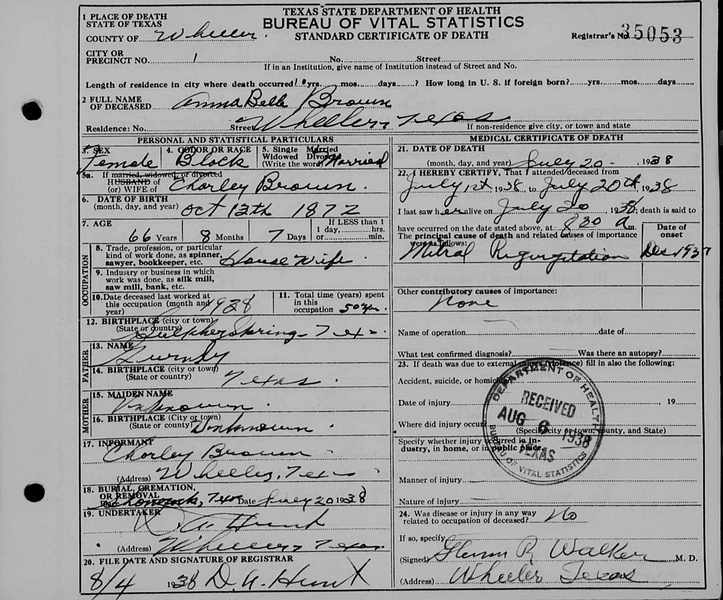 TEXAS STATE DEPARTMENT OF HEALTH
BUREAU OF VITAL STATISTICS
STANDARD CERTIFICATE OF DEATH
Registrar's No. 35053
1 PLACE OF DEATH
STATE OF TEXAS
COUNTY OF Wheeler
CITY OR
PRECINCT NO. 1 No. Street
If in an Institution, give name of Institution instead of Street and No.
Length of residence in city where death occurred yrs. mos. days? How long in U. S. if foreign born? yrs. mos. days
2 FULL NAME
OF DECEASED Anna Bell Brown
Residence: No. Street Wheeler, Texas
If non-residence give city, or town and state
PERSONAL AND STATISTICAL PARTICULARS
3. SEX 4. COLOR OR RACE 5. Single Married
Widowed Divorced
(Write the word) Married
Female Black
5a. If married, widowed, or divorced
HUSBAND of
(or) WIFE of Charley Brown
6. DATE OF BIRTH
(month, day, and year) Oct 13th 1872
7. AGE
66 Years 8 Months 7 Days
If LESS than
1 day, hrs.
or min.
OCCUPATION
8. Trade, profession, or particular
kind of work done, as spinner,
sawyer, bookkeeper, etc. House Wife
9. Industry or business in which
work was done, as silk mill,
saw mill, bank, etc.
10. Date deceased last worked at
this occupation (month and
year) 1938
11. Total time (years) spent
in this
occupation 50 yr
12. BIRTHPLACE (city or town)
(State or country) Sulpher Spring - Tex
FATHER
13. NAME
Gurnly
14. BIRTHPLACE (city or town)
(State or country) Texas
MOTHER
15. MAIDEN NAME
Unknown
16. BIRTHPLACE (City or town)
(State or country) Unknown
17. INFORMANT
Charley Brown
(Address) Wheeler, Texas
18. BURIAL, CREMATION,
OR REMOVAL
Texas Date July 20 1938
19. UNDERTAKER
D. A. Hunt
(Address) Wheeler, Texas
20. FILE DATE AND SIGNATURE OF REGISTRAR
8/4 1938 D. A. Hunt
MEDICAL CERTIFICATE OF DEATH
21. DATE OF DEATH
(month, day, and year) July 20 - 1938
22. I HEREBY CERTIFY, That I attended deceased from
July 1st 1938 to July 20th 1938
I last saw her alive on July 20 1938; death is said to
have occurred on the date stated above, at 8 30 a m.
The principal cause of death and related causes of importance
were as follows:
Date of
onset
Mitral Regurgitation Dec 1937
Other contributory causes of importance:
None
Name of operation date of
What test confirmed diagnosis? Was there an autopsy?
23. If death was due to external causes (violence) fill in also the following:
Accident, suicide, or homicide
Date of injury 19
Where did injury occur
(Specify city or town, county, and State)
Specify whether injury occurred in industry, in home, or in public place
Manner of injury
Nature of injury
DEPARTMENT OF HEALTH
RECEIVED
AUG 6 1938
TEXAS
BUREAU OF VITAL STATISTICS
24. Was disease or injury in any way
related to occupation of deceased? No
If so, specify
(Signed) Glenn R. Walker M. D.
(Address) Wheeler Texas